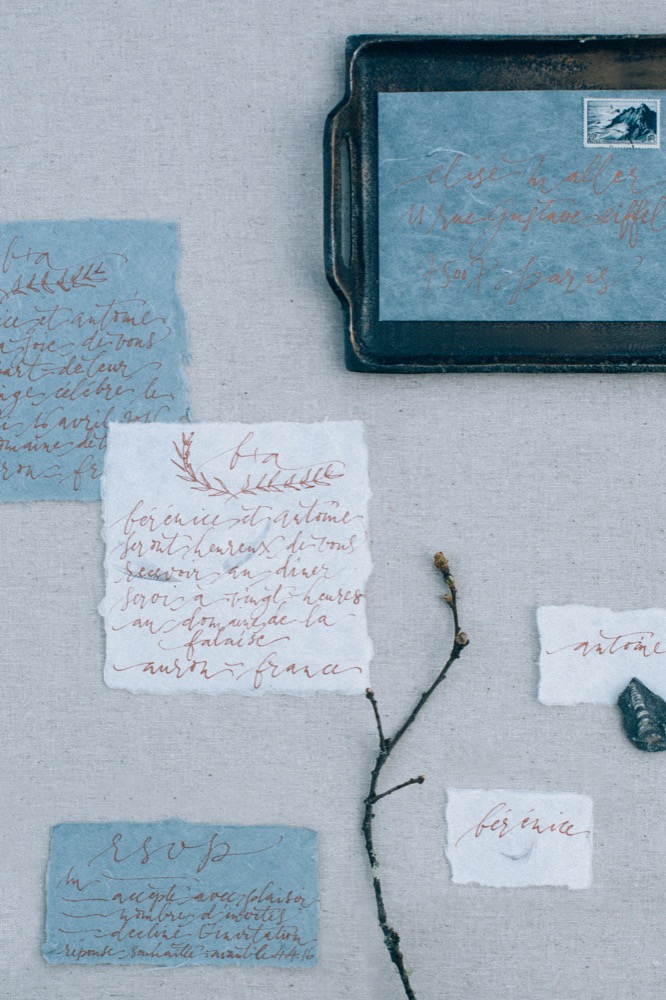 elise waller
11 rue gustave eiffel
7500X, paris
b+a
ice et antoine
a joie de vous
part de leur
célébre le
16 avril
domaine de
b+a
bérénice et antoine
seront heureux de vous
recevoir au diner
servis à vingt heures
au domaine de la
falaise
auron, france
antoine
bérénice
rsvp
m
accepte avec plaisir
nombre d'invités
decline l'invitation
réponse souhaitée avant le 4.4.16